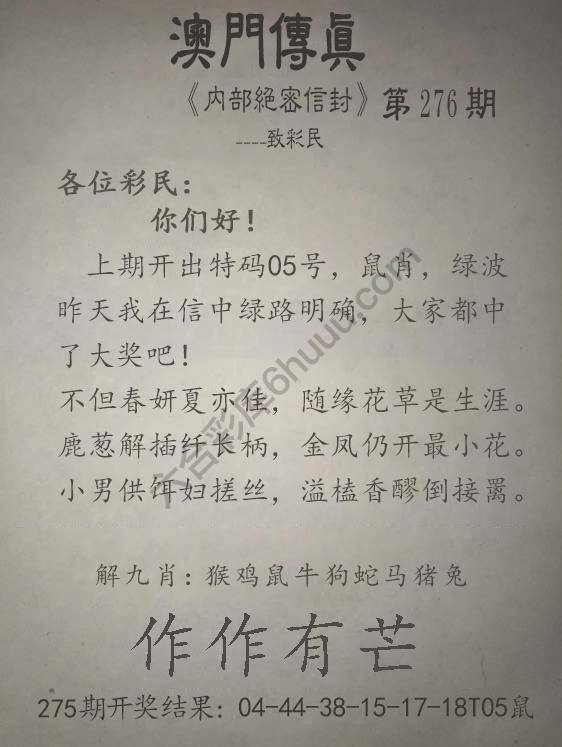 澳門傳真
《内部絕密信封》第276期
----致彩民
各位彩民：
你们好！
上期开出特码05号，鼠肖，绿波
昨天我在信中绿路明确，大家都中
了大奖吧！
不但春妍夏亦佳，随缘花草是生涯。
鹿葱解插纤长柄，金凤仍开最小花。
小男供饵妇搓丝，溢榼香醪倒接罱。
解九肖：猴鸡鼠牛狗蛇马猪兔
作作有芒
275期开奖结果：04-44-38-15-17-18T05鼠
六合彩库6huuu.com